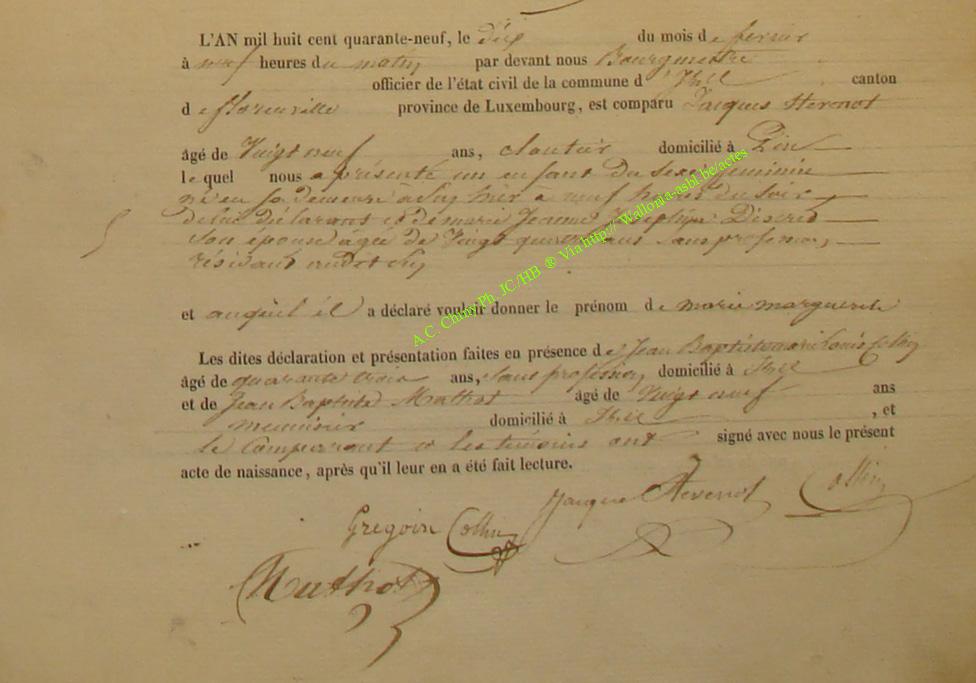 L'AN mil huit cent quarante-neuf, le dix du mois de fevrier
à neuf heures du matin par devant nous Bourgmestre
officier de l'état civil de la commune d'Izel canton
de florenville province de Luxembourg, est comparu Jacques Hevenot
âgé de Vingt neuf ans, cloutier domicilié à Pin
lequel nous a présenté un enfant du sexe feminin
né en sa demeure à hier à neuf heures du soir
de lui déclarant et de marie Jeanne
son épouse âgée de Vingt ans sans profession,
résidant audit
et auquel il a déclaré vouloir donner le prénom de marie marguerite
Les dites déclaration et présentation faites en présence de Jean Baptiste marie Louis Collin
âgé de quarante trois ans, sans profession, domicilié à Izel
et de Jean Baptiste Mathot âgé de Vingt neuf ans
menuisier domicilié à Izel , et
le Comparant et les témoins ont signé avec nous le présent
acte de naissance, après qu'il leur en a été fait lecture.
Jacque Hevenot Collin
Gregoir Collin
Mathot
A.C. Chiny Ph. JC/HB ® Via http://Wallonia-asbl.be/actes